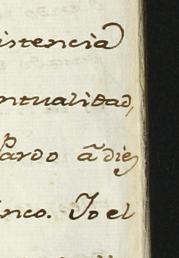 istencia
ntualidad,
Pardo â diez
inco. Yo el